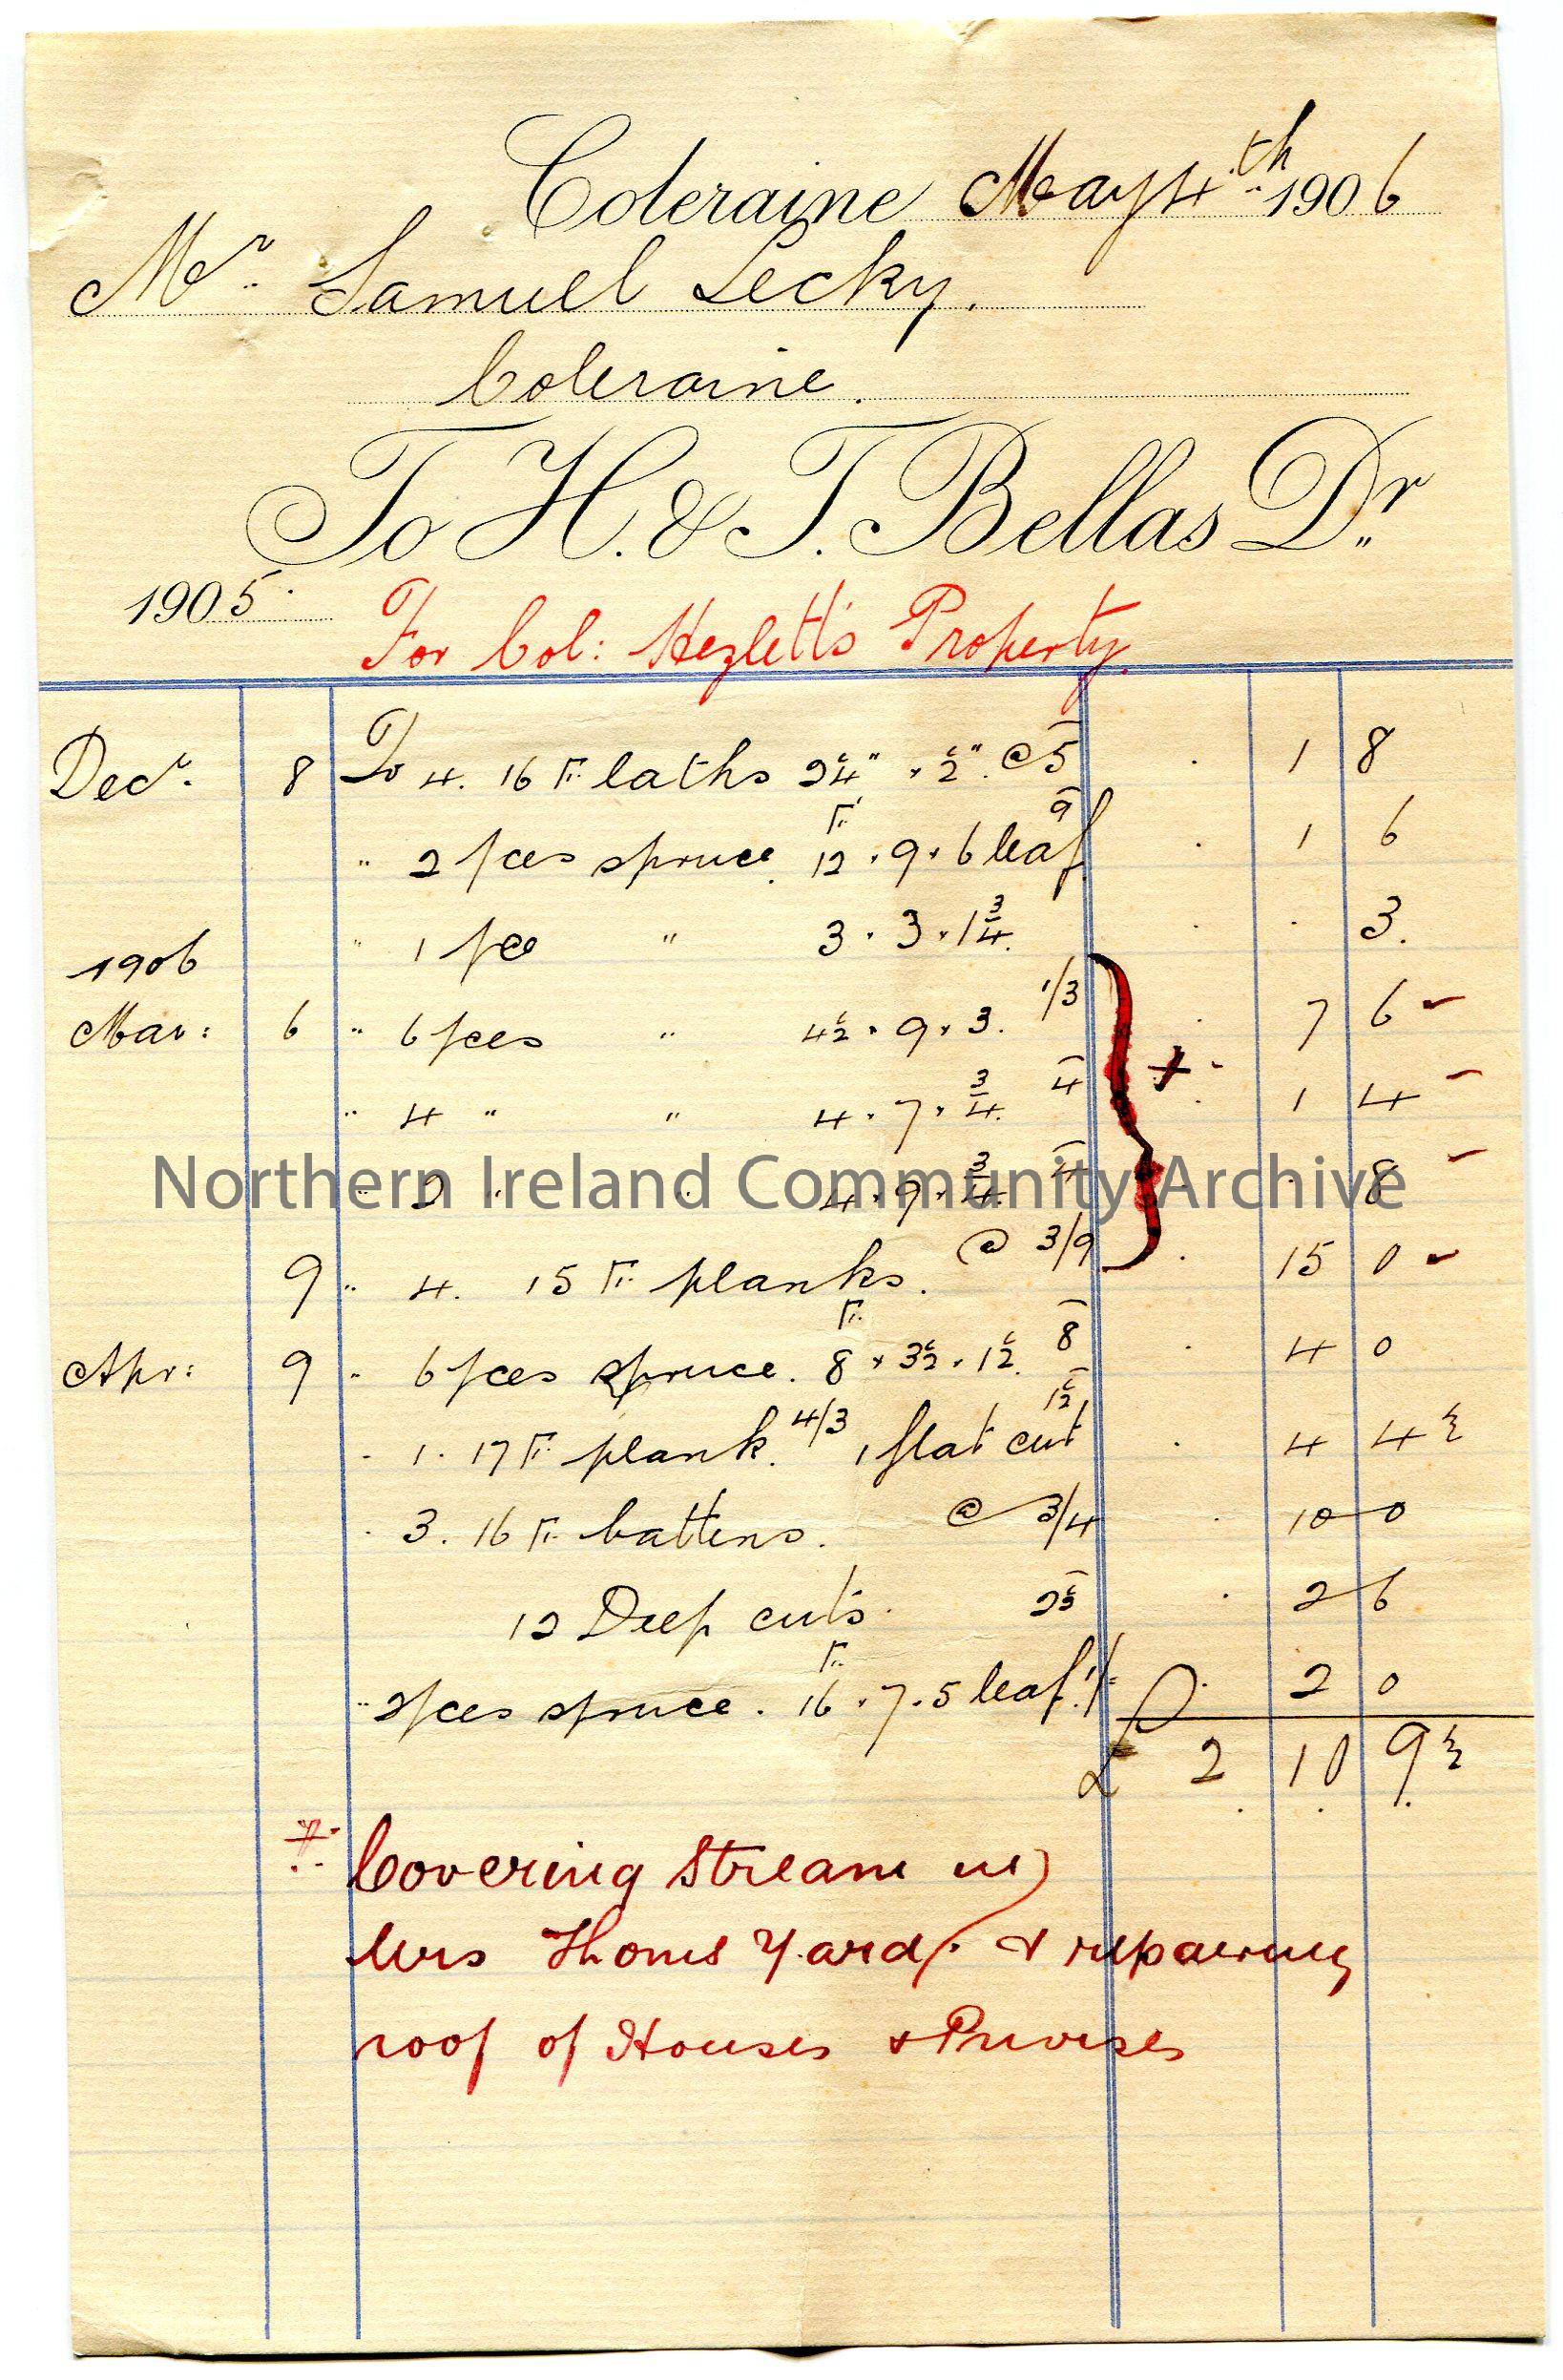 Coleraine May 4th 1906
Mr. Samuel Lecky.
Coleraine.
To H. & T. Bellas Dr
1905. For Col: Hezlett's Property
Decr. 8 To 4. 16 Ft. laths 2¼" × ½". @ 5 1 8
" 2 pces spruce. 12 Ft. × 9 × 6 leaf 9 1 6
" 1 pce " 3 × 3 × 1¾. 3.
1906
Mar: 6 " 6 pces " 4½ × 9 × 3. 1/3 7 6
" 4 " " 4 × 7 × ¾. 4 1 4
" 2 " " 4 × 9 × ¾. 4 8
Northern Ireland Community Archive
9 " 4. 15 Ft. planks. @ 3/9 15 0
Apr: 9 " 6 pces spruce. 8 Ft. × 3½ × 1½. 8 4 0
" 1. 17 Ft. plank. 4/3, 1 flat cut 1½ 4 4½
" 3. 16 Ft. battens. @ 3/4 10 0
12 Deep cuts. 2½ 2 6
" 2 pces spruce. 16 Ft. × 7 × 5 leaf. 1/- 2 0
£ 2 10 9½
Covering Stream in
Mrs Thoms Yard. & repairing
roof of Houses & Privises